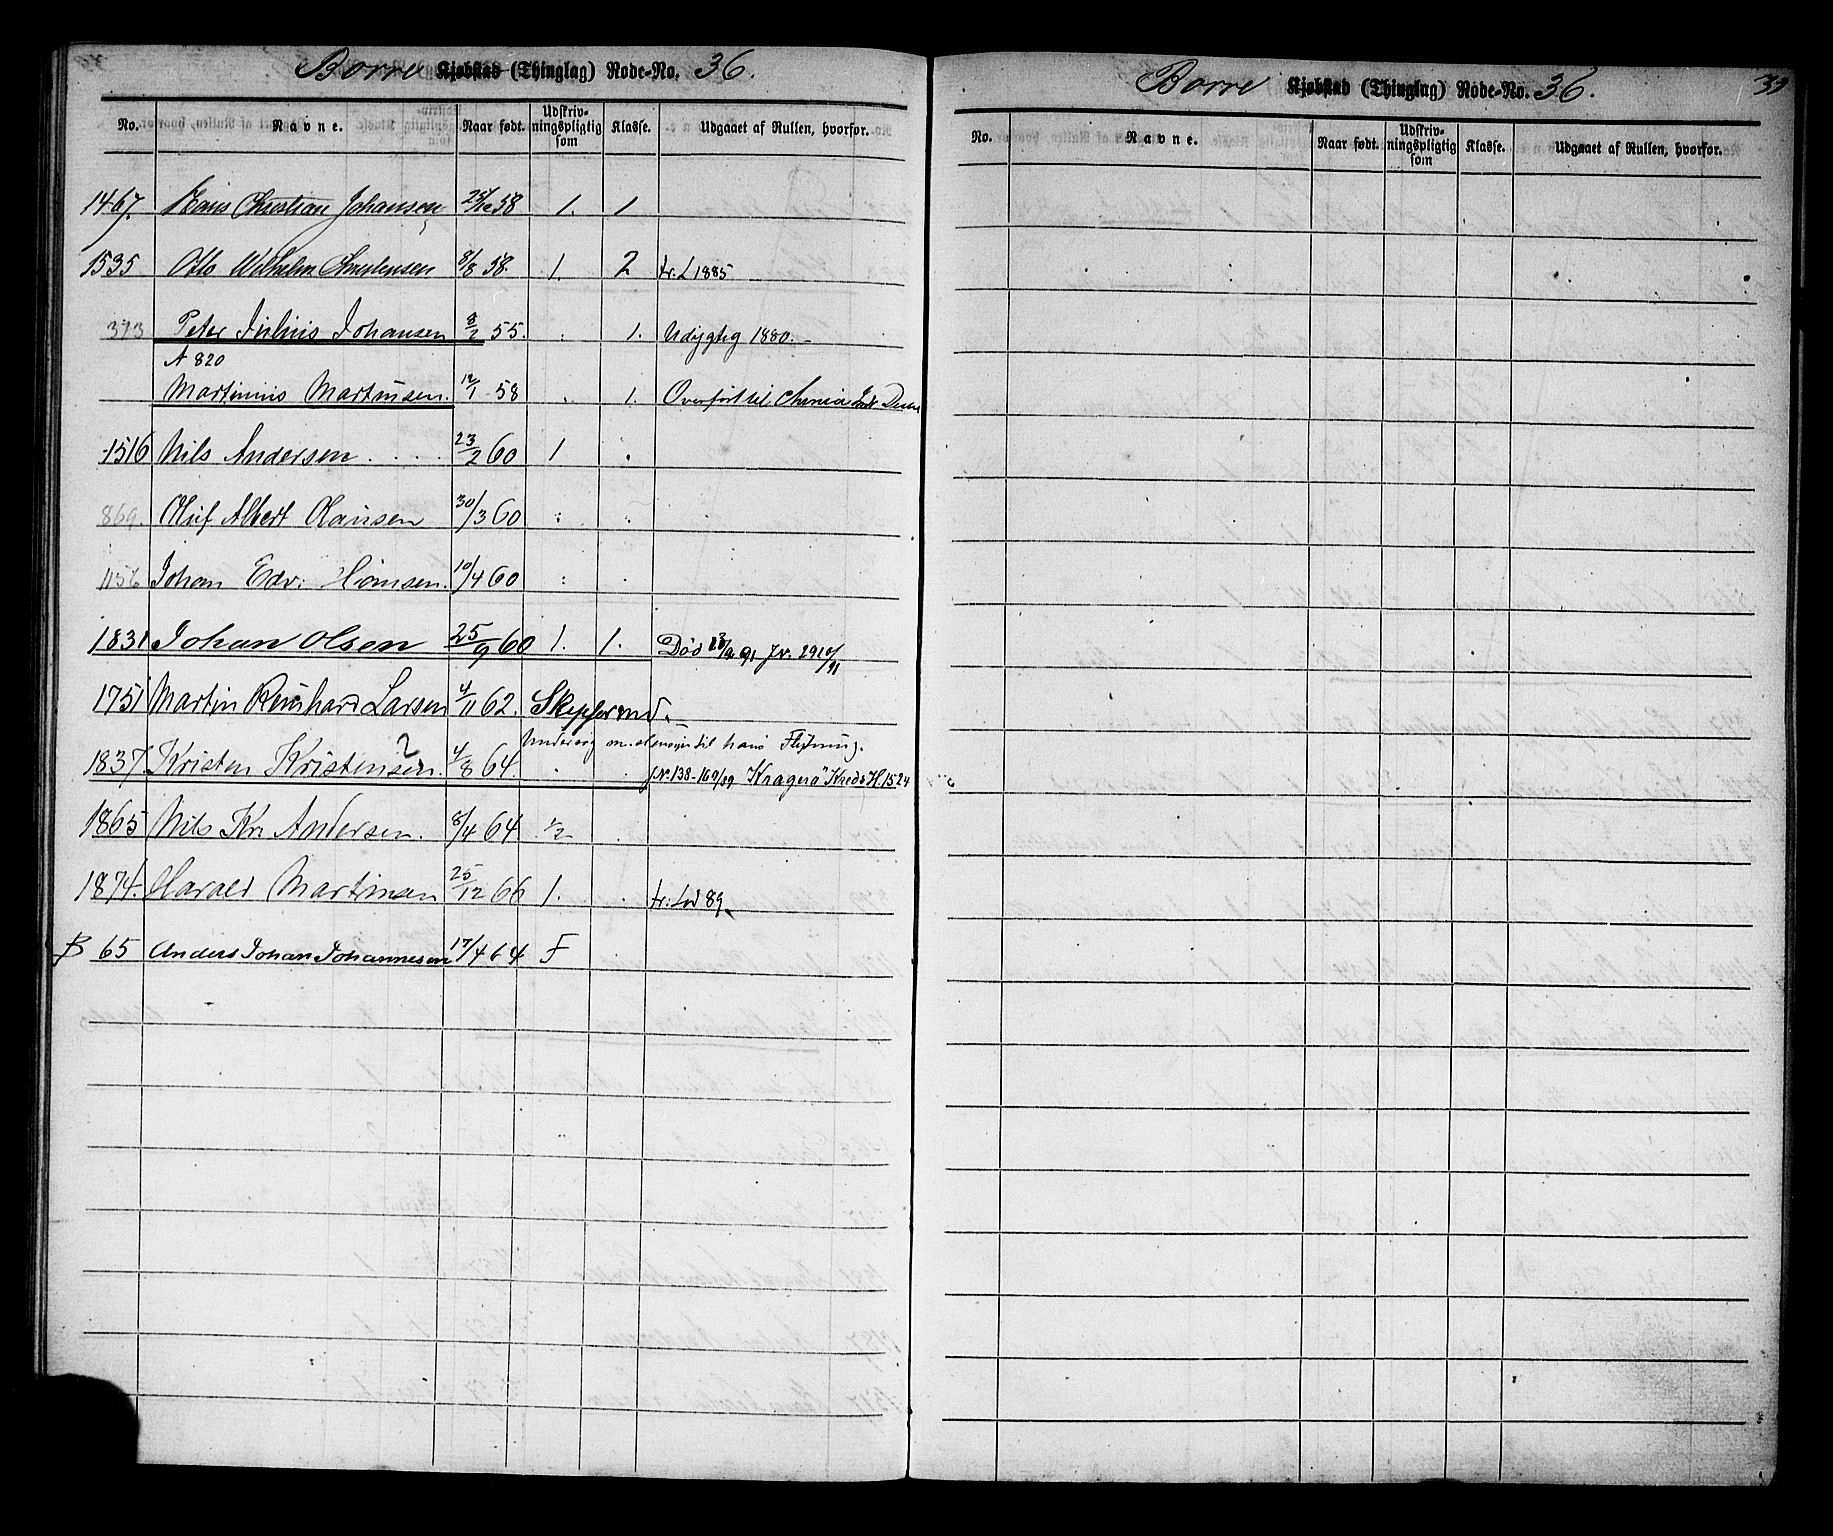 Borre Kjøbstad (Thinglag) Rode-No. 36.
No. Navne. Naar født. Udskriv-ningspligtig som Klasse. Udgaaet af Rullen, hvorfor.
1467. Hans Christian Johansen 58 1. 1
1535 Otto Wilhelm Christensen 8/8 58. 1. 2 tr. L 1885
373 Peter Julius Johansen 8/2 55. 1. Udygtig 1880.
A 820
Martinius Martinsen. 12/1 58 1. Overført til
1516 Nils Andersen 23/2 60 1
869. Oluf Albert Hansen 30/3 60
1156 Johan Edv: 10/4 60
1831 Johan Olsen 25/9 60 1. 1. Død 91 Jr. 29
1751 Martin Reinhard Larsen 4/11 62.
Undersøg til hans Flytning.
1837. Kristen Kristensen. 2 4/8 64. Jr. 138- "Kragerø" Kreds H. 1524
1865 Nils Kr. Andersen. 8/4 64 1/2
1874. Harald Martinsen 25/12 66 1. tr: Lod 89.
B 65 Anders Johan Johannesen 17/4 64 F
Borre Kjøbstad (Thinglag) Rode-No. 36. 39
No. Navne. Naar født. Udskriv-ningspligtig som Klasse. Udgaaet af Rullen, hvorfor.